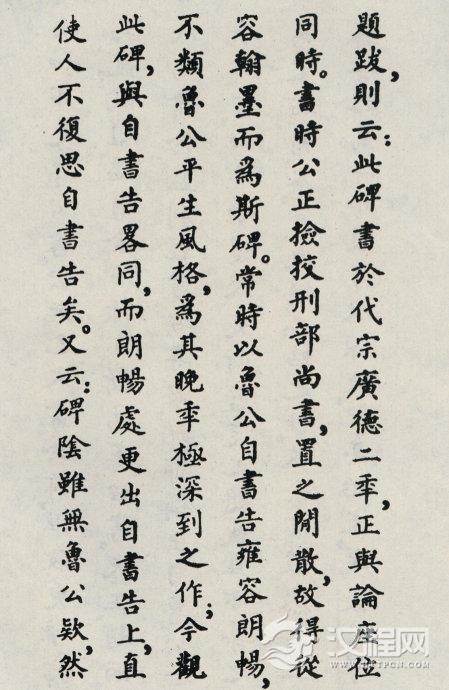 題跋,則云:此碑書於代宗廣德二秊,正與論座位
同時。書時公正撿挍刑部尚書,置之閒散,故得從
容翰墨而為斯碑。常時以魯公自書告雍容朗暢,
不類魯公平生風格,為其晚秊極深到之作;今觀
此碑,與自書告畧同,而朗暢處更出自書告上,直
使人不復思自書告矣。又云:碑陰雖無魯公欵,然
汉程网
HTTPCN.COM